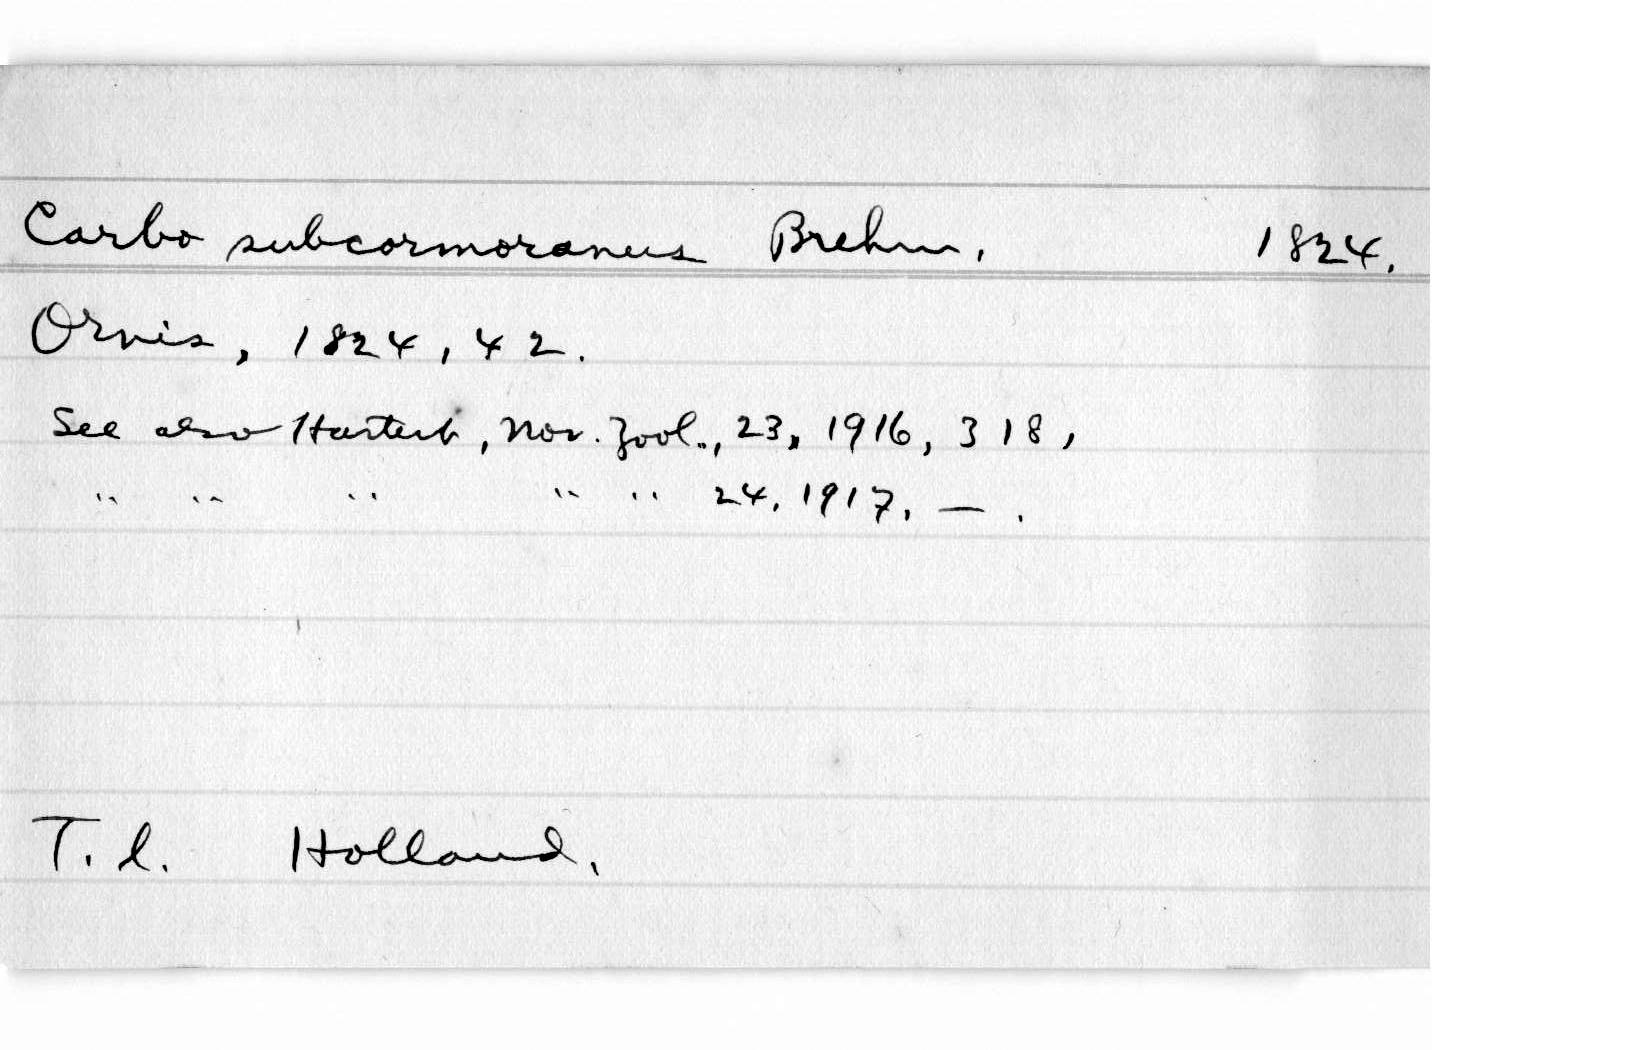 Carbo subcormoranus Brehm. 1824.
Ornis, 1824, 42.
See also Hartert, Nov. Zool., 23, 1916, 318,
" " " " " 24, 1917, — .
T. l. Holland.